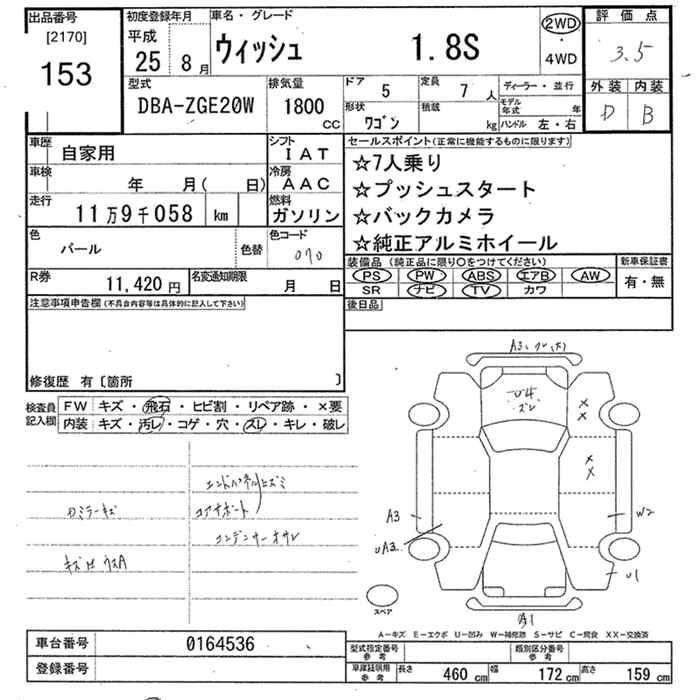 出品番号
[2170]
153
初度登録年月
平成
25 8月
車名・グレード
ウィッシュ 1.8S
2WD
・
4WD
評価点
3.5
外装 内装
D B
型式
DBA-ZGE20W
排気量
1800
CC
ドア 5
定員 7 人
形状 ワゴン
積載 kg
ディーラー・並行
モデル年式 年
ハンドル 左・右
車歴 自家用
シフト
IAT
車検 年 月( 日)
冷房
AAC
走行 11万9千058 km
燃料
ガソリン
色 パール 色替
色コード
070
R券 11,420 円
名変通知期限
月 日
セールスポイント(正常に機能するものに限ります)
☆7人乗り
☆プッシュスタート
☆バックカメラ
☆純正アルミホイール
装備品 (純正品に限り○をつけてください)
PS PW ABS エアB AW
SR ナビ TV カワ
新車保証書
有・無
後日品
注意事項申告欄(不具合内容等は具体的に記入して下さい)
修復歴 有〔箇所 〕
検査員記入欄
FW キズ・飛石・ヒビ割・リペア跡・×要
内装 キズ・汚レ・コゲ・穴・スレ・キレ・破レ
エンドパネルヒズミ
コアサポート
コンデンサーオサレ
ロミラーキズ
A3
U4
ズレ
×
×
×
×
A3
UA3
W2
U1
A1
スペア
A−キズ E−エクボ U−凹み W−補修跡 S−サビ C−腐食 XX−交換済
車台番号 0164536
登録番号
型式指定番号
参考
類別区分番号
参考
車庫証明用
参考
長さ 460 cm 幅 172 cm 高さ 159 cm